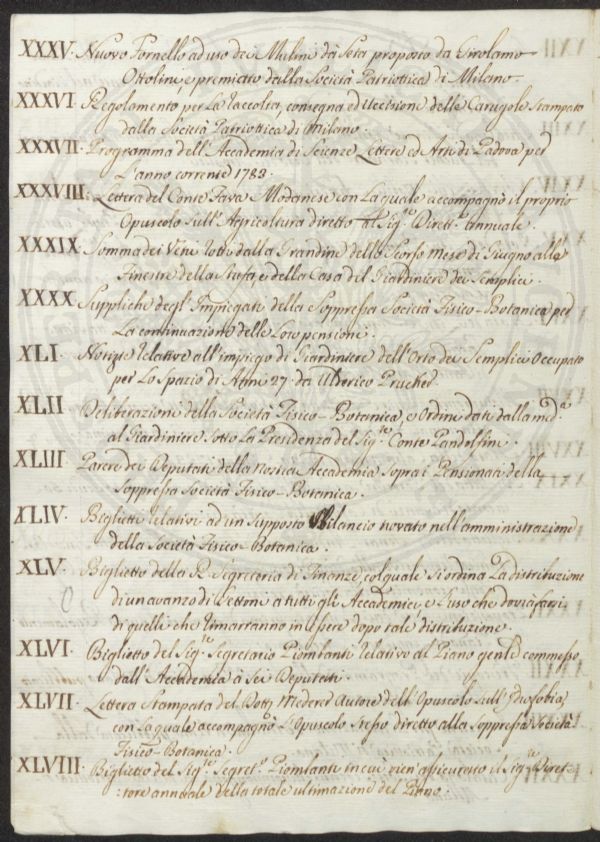 XXXV. Nuovo Fornello ad uso dei Mulini da Seta proposto da Girolamo
Ottolini, e premiato dalla Società Patriottica di Milano.
XXXVI. Regolamento per La raccolta, consegna ed Uccisione delle Carugole Stampato
dalla Società Patriottica di Milano.
XXXVII. Programma dell'Accademia di Scienze Lettere ed Arti di Padova per
L'anno corrente 1783.
XXXVIII. Lettera del Conte Fava Modanese con La quale accompagnò il proprio
Opuscolo sull'Agricoltura diretto al Sigre. Dirett.e annuale.
XXXIX. Somma dei Vetri rotti dalla Grandine dello Scorso Mese di Giugno alle
Finestre della Stufa, e della Casa del Giardiniere dei Semplici.
XXXX. Suppliche degl'Impiegati della Soppressa Società Fisico-Botanica per
La continuazione delle Loro pensioni.
XLI. Notizie relative all'impiego di Giardiniere dell'Orto dei Semplici Occupato
per Lo spazio di Anni 27. da Ulderico Prucher.
XLII. Deliberazioni della Società Fisico-Botanica, e Ordini dati dalla med.a
al Giardiniere sotto La Presidenza del Sig.re Conte Pandolfini.
XLIII. Parere dei Deputati della nostra Accademia Sopra i Pensionati della
Soppressa Società Fisico-Botanica.
XLIV. Biglietti relativi ad un supposto Sbilancio trovato nell'amministrazione
della Società Fisico-Botanica.
XLV. Biglietto della R. Segreteria di Finanze, col quale Si ordina La distribuzione
di un avanzo di Lettoni a tutti gli Accademici, e L'uso che dovrà farsi
di quelli che rimarranno in essere dopo tale distribuzione.
XLVI. Biglietto del Sig.re Segretario Piombanti relativo al Piano gen.le commesso
dall'Accademia a Sei Deputati.
XLVII. Lettera Stampata del Dott. Mederer Autore dell'Opuscolo sull'Idrofobia,
con La quale accompagnò L'Opuscolo Stesso diretto alla Soppressa Società
Fisico-Botanica.
XLVIII. Biglietto del Sig.re Segret.o Piombanti in cui vien'assicurato il Sig.re Diret-
:tore annuale della totale ultimazione del Piano.